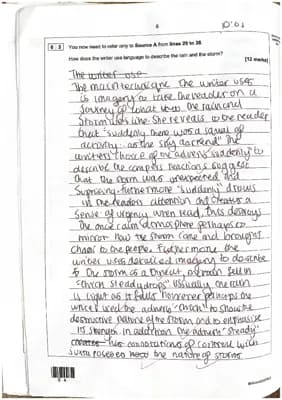 6
10:01
0 3 You now need to refer only to Source A from lines 25 to 35.
How does the writer use language to describe the rain and the storm?
[12 marks]
The writer use
The main technique the writer uses
is imagery to take the reader on a
journey of what was the rain and
Storm was like. She reveals to the reader
that "suddenly there was a squall of
activity as the sky darkened" The
writers choice of the adverb "suddenly" to
describe the reactions suggest
that the storm was unexpected and
Suprising furthermore "suddenly" draws
in the readers attention and creates a
Sense of urgency when read, this destroys
the once calm atmosphere perhaps to
mirror how the storm came and brought
chaos to the people. Furthermore the
writer uses detailed imagery to describe
the storm as a threat, as rain fell in
"thick steady drops" usually the rain
is light as it falls however perhaps the
writer used the adverb "thick" to show the
destructive nature of the storm and to emphasise
its strength. in addition the adverb "steady"
creates has connotations of control which
juxtaposes the nature of storms
0 6